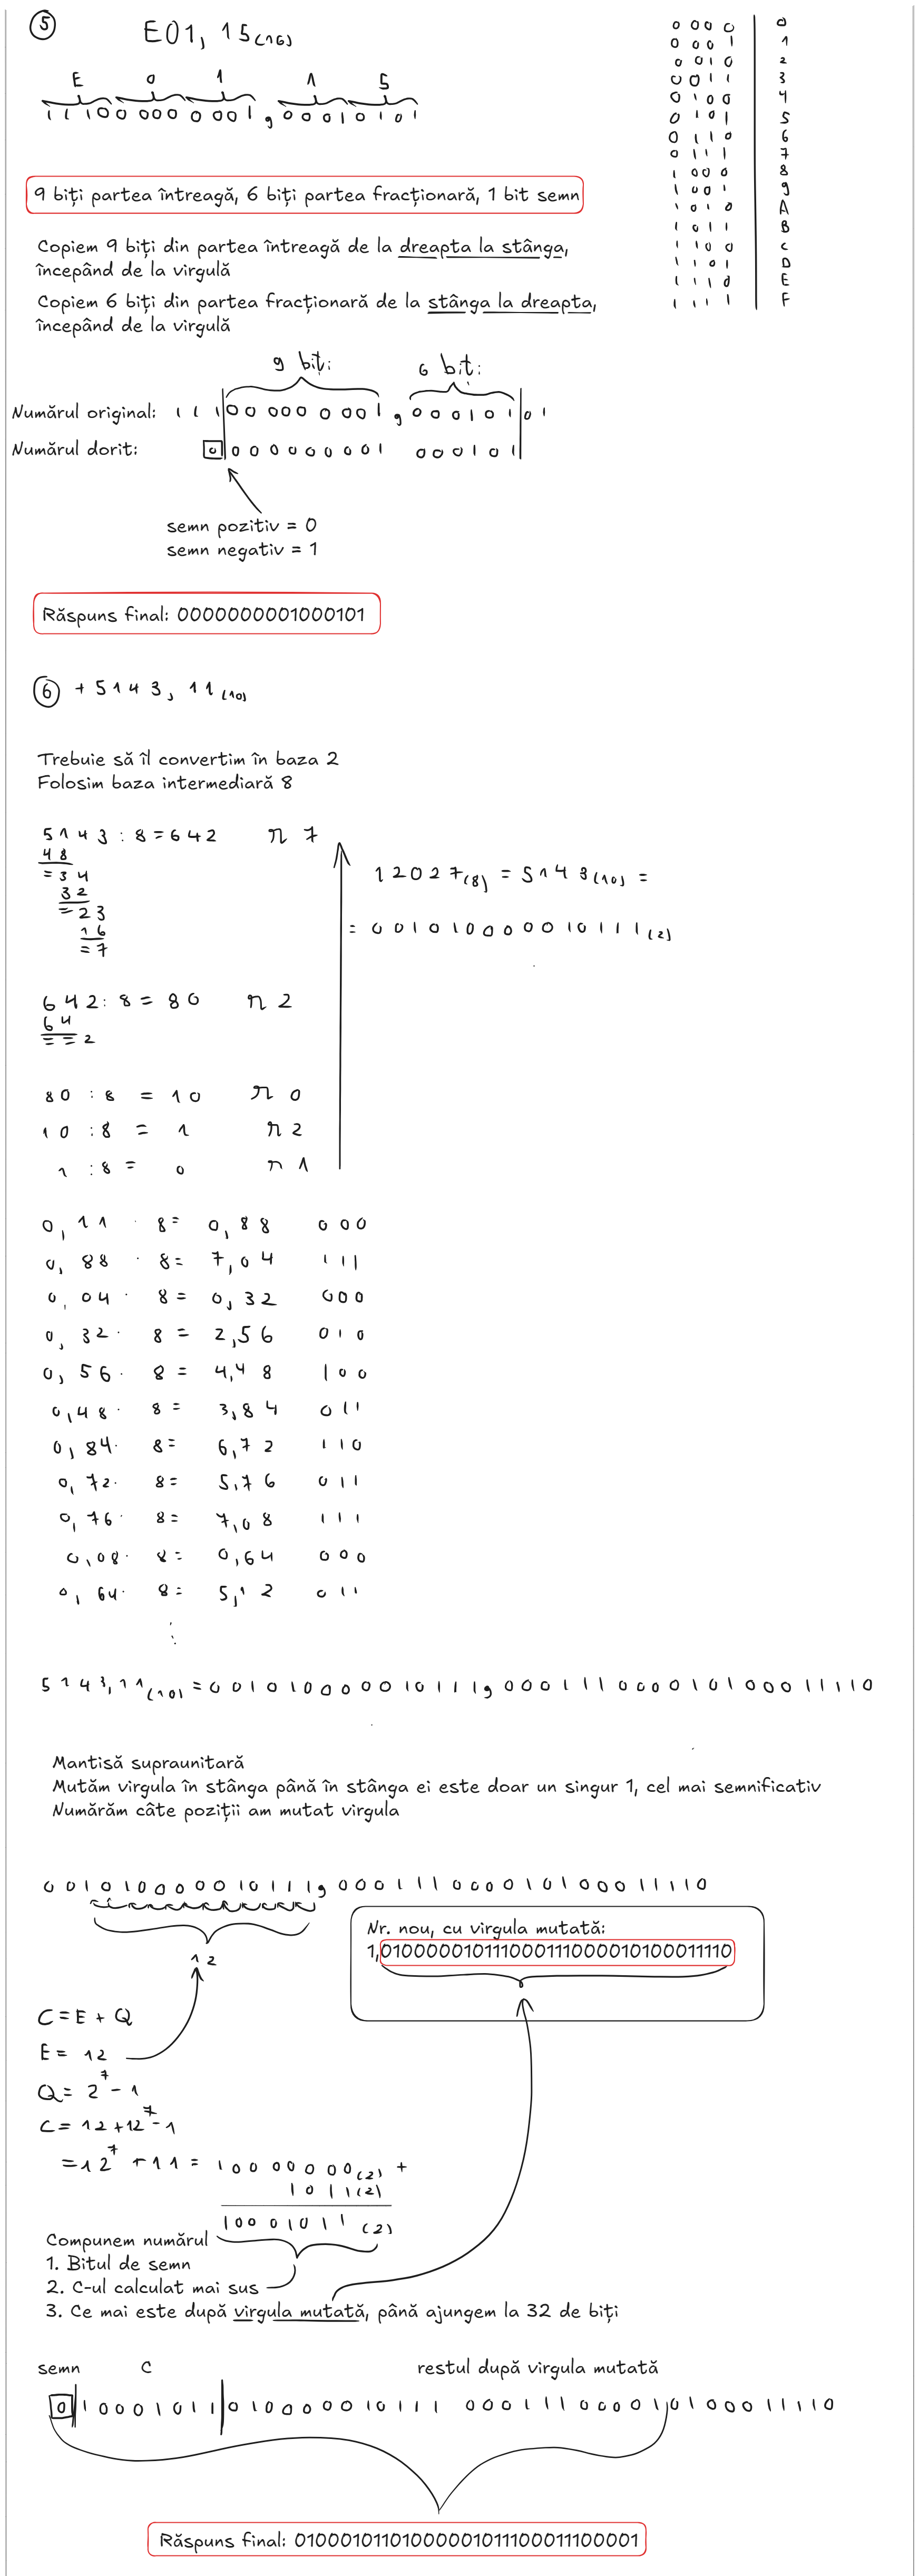 5 E01, 15(16)
E 0 1 1 5
1 1 1 0 0 0 0 0 0 0 0 1 , 0 0 0 1 0 1 0 1
0 0 0 0 0
0 0 0 1 1
0 0 1 0 2
0 0 1 1 3
0 1 0 0 4
0 1 0 1 5
0 1 1 0 6
0 1 1 1 7
1 0 0 0 8
1 0 0 1 9
1 0 1 0 A
1 0 1 1 B
1 1 0 0 C
1 1 0 1 D
1 1 1 0 E
1 1 1 1 F
9 biți partea întreagă, 6 biți partea fracționară, 1 bit semn
Copiem 9 biți din partea întreagă de la dreapta la stânga,
începând de la virgulă
Copiem 6 biți din partea fracționară de la stânga la dreapta,
începând de la virgulă
9 biți 6 biți
Numărul original: 1 1 1 0 0 0 0 0 0 0 0 1 , 0 0 0 1 0 1 0 1
Numărul dorit: 0 0 0 0 0 0 0 0 0 1 0 0 0 1 0 1
semn pozitiv = 0
semn negativ = 1
Răspuns final: 0000000001000101
6 + 5143, 11 (10)
Trebuie să îl convertim în baza 2
Folosim baza intermediară 8
5143 : 8 = 642 r 7
48
= 34
32
= 23
16
= 7
12027(8) = 5143(10) =
= 0 0 1 0 1 0 0 0 0 0 1 0 1 1 1 (2)
642 : 8 = 80 r 2
64
= = 2
80 : 8 = 10 r 0
10 : 8 = 1 r 2
1 : 8 = 0 r 1
0,11 · 8 = 0,88 000
0,88 · 8 = 7,04 111
0,04 · 8 = 0,32 000
0,32 · 8 = 2,56 010
0,56 · 8 = 4,48 100
0,48 · 8 = 3,84 011
0,84 · 8 = 6,72 110
0,72 · 8 = 5,76 011
0,76 · 8 = 7,08 111
0,08 · 8 = 0,64 000
0,64 · 8 = 5,12 011
5143,11(10) = 0 0 1 0 1 0 0 0 0 0 1 0 1 1 1 , 0 0 0 1 1 1 0 0 0 0 1 0 1 0 0 0 1 1 1 1 0
Mantisă supraunitară
Mutăm virgula în stânga până în stânga ei este doar un singur 1, cel mai semnificativ
Numărăm câte poziții am mutat virgula
0 0 1 0 1 0 0 0 0 0 1 0 1 1 1 , 0 0 0 1 1 1 0 0 0 0 1 0 1 0 0 0 1 1 1 1 0
12
Nr. nou, cu virgula mutată:
1,010000010111000111000010100011110
C = E + Q
E = 12
Q = 2^7 - 1
C = 12 + 12^7 - 1
= 12^7 + 11 = 10000000(2) +
1011(2)
10001011 (2)
Compunem numărul
1. Bitul de semn
2. C-ul calculat mai sus
3. Ce mai este după virgula mutată, până ajungem la 32 de biți
semn C restul după virgula mutată
0 1 0 0 0 1 0 1 1 0 1 0 0 0 0 0 1 0 1 1 1 0 0 0 1 1 1 0 0 0 0 1 0 1 0 0 0 1 1 1 1 0
Răspuns final: 01000101101000001011100011100001